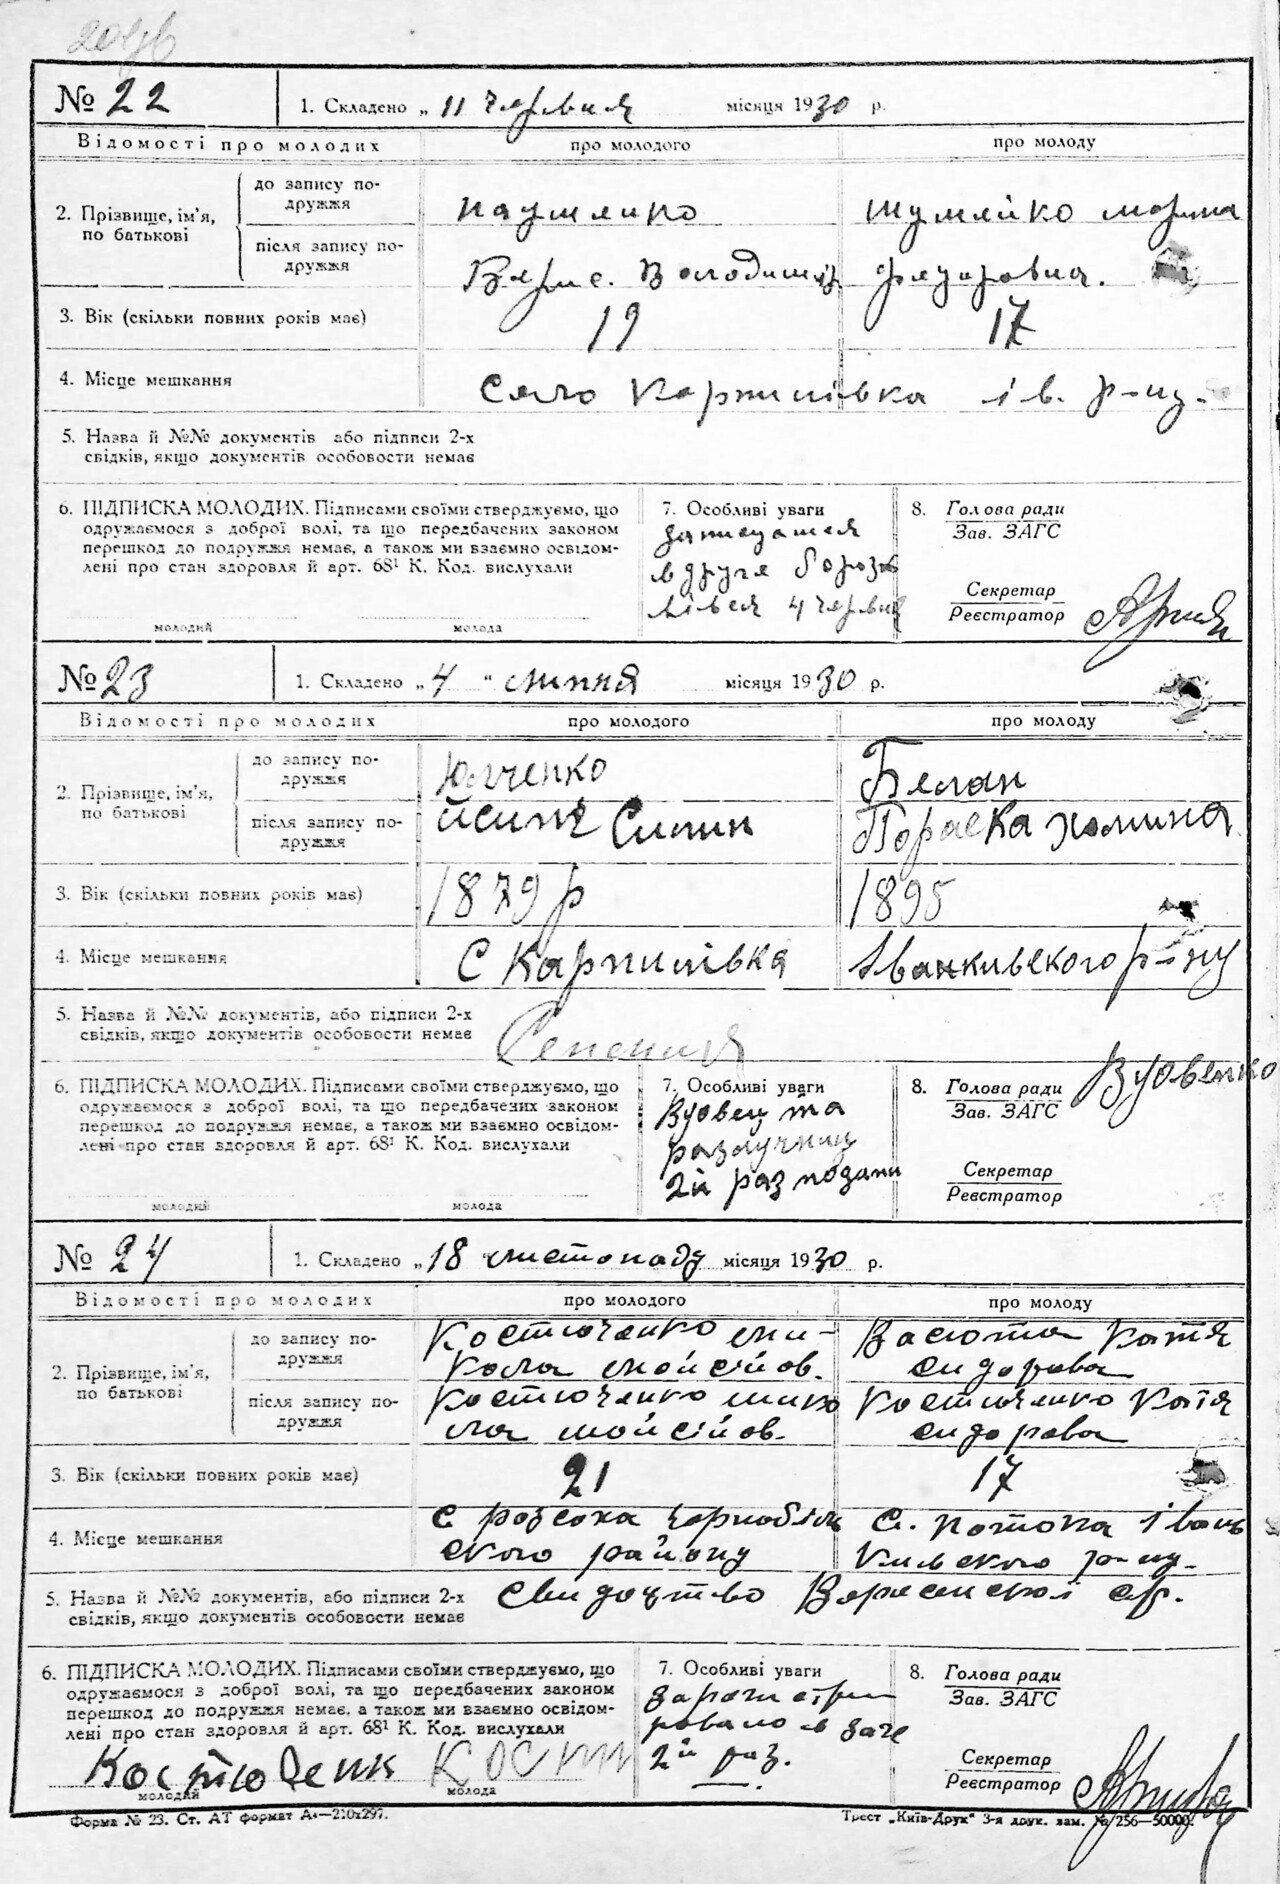 № 22
1. Складено „ 11 червня місяця 1930 р.
Відомості про молодих
про молодого
про молоду
2. Прізвище, ім'я, по батькові
до запису подружжя
після запису подружжя
Шумлейко
Володимир Федоровна.
3. Вік (скільки повних років має)
19
17
4. Місце мешкання
Село Карпилівка Ів. р-ну.
5. Назва й №№ документів або підписи 2-х
свідків, якщо документів особовости немає
6. ПІДПИСКА МОЛОДИХ. Підписами своїми стверджуємо, що
одружаємося з доброї волі, та що передбачених законом
перешкод до подружжя немає, а також ми взаємно освідом-
лені про стан здоровля й арт. 68¹ К. Код. вислухали
молодий
молода
7. Особливі уваги
4 червня
8. Голова ради
Зав. ЗАГС
Секретар
Реєстратор
№ 23
1. Складено „ 4 " липня місяця 1930 р.
Відомості про молодих
про молодого
про молоду
2. Прізвище, ім'я, по батькові
до запису подружжя
після запису подружжя
Юрченко
Белан
Параска Хомина
3. Вік (скільки повних років має)
1879 р
1895
4. Місце мешкання
С Карпилівка Іванкивського р-ну
5. Назва й №№ документів, або підписи 2-х
свідків, якщо документів особовости немає
6. ПІДПИСКА МОЛОДИХ. Підписами своїми стверджуємо, що
одружаємося з доброї волі, та що передбачених законом
перешкод до подружжя немає, а також ми взаємно освідом-
лені про стан здоровля й арт. 68¹ К. Код. вислухали
молодий
молода
7. Особливі уваги
Вдовец та
2й раз
8. Голова ради
Вдовенко
Зав. ЗАГС
Секретар
Реєстратор
№ 24
1. Складено „ 18 " листопаду місяця 1930 р.
Відомості про молодих
про молодого
про молоду
2. Прізвище, ім'я, по батькові
до запису подружжя
Костюченко Ми-
кола Мойсійов.
Васюта Катя
Сидорова
після запису подружжя
Костюченко Мико
ла Мойсійов.
Костюченко Катя
Сидорова
3. Вік (скільки повних років має)
21
17
4. Місце мешкання
С Розсоха Чорнобиль
ского району
С. Потоки Іван
кивского р-ну.
5. Назва й №№ документів, або підписи 2-х
свідків, якщо документів особовости немає
Свидоцтво с/р.
6. ПІДПИСКА МОЛОДИХ. Підписами своїми стверджуємо, що
одружаємося з доброї волі, та що передбачених законом
перешкод до подружжя немає, а також ми взаємно освідом-
лені про стан здоровля й арт. 68¹ К. Код. вислухали
Костюченк Кости
молодий
молода
7. Особливі уваги
зарегистри
ровано в загс
2й раз.
8. Голова ради
Зав. ЗАГС
Секретар
Реєстратор
Форма № 23. Ст. АТ формат А₄—210х297.
Трест „Київ-Друк" 3-я друк. зам. № 256—50000.